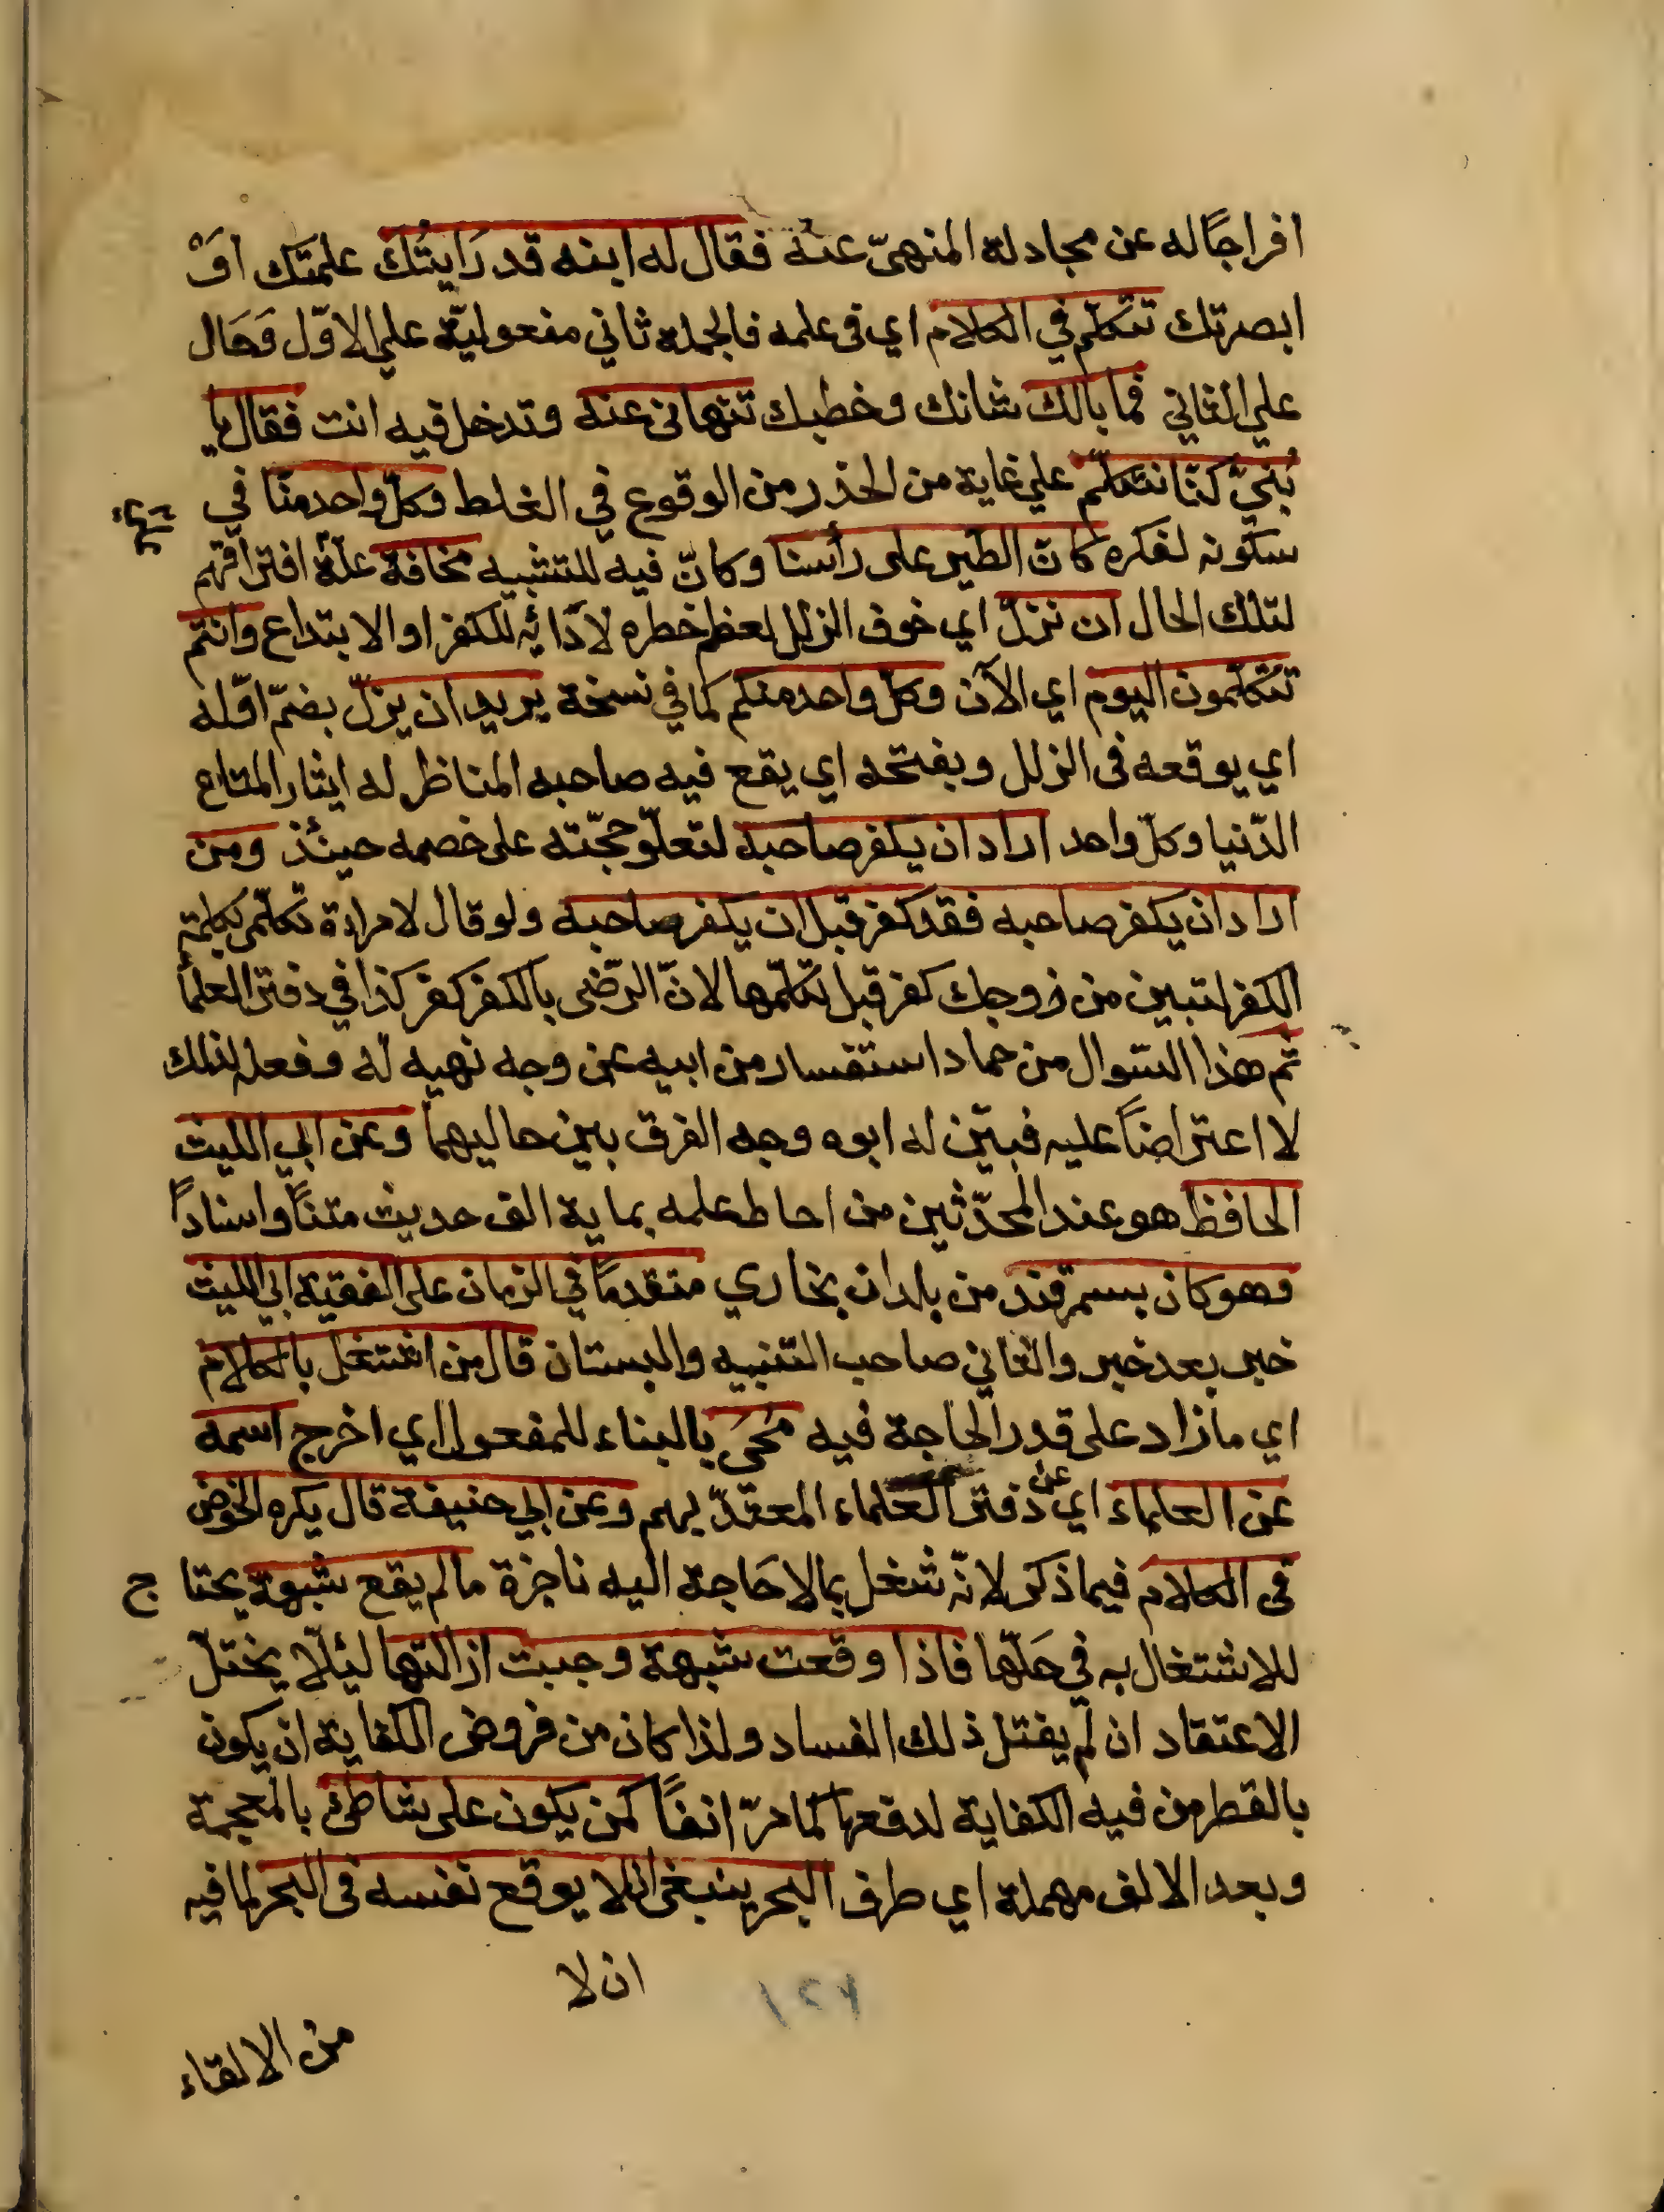 افراجًا له عن مجادلة المنهىّ عنه فقال له ابنه قد رَايتُكَ علمتك اوْ
ابصرتك تتكلّم في الكلام اي فى علمه فالجملة ثاني مفعوليّه علي الاوّل وَحَال
علي الثاني فما بالك شانك وخطبك تنهانى عنه وتدخل فيه انت فقال يا
بُنيَّ كنّا نتكلّم علي غاية من الحذر من الوقوع في الغلط وكلّ واحد منّا في
سكونه لفكره كانّ الطير على رأسنا وكانّ فيه للتشبيه مخافة علّة افتراقهم
لتلك الحال ان نزلّ اي خوف الزلل لعظم خطره لادائه للكفر او الابتداع وانتم
تتكلّمون اليوم اي الآن وكلّ واحد منكم كما في نسخة يريد ان يزلّ بضمّ اوّله
اي يوقعه فى الزلل وبفتحه اي يقع فيه صاحبه المناظر له ايثار المتاع
الدّنيا وكلّ واحد اراد ان يكفر صاحبه لتعلّو حجّته على خصمه حينئذ ومن
اراد ان يكفر صاحبه فقد كفر قبل ان يكفر صاحبه ولو قال لامراة تكلّمى بكلمة
الكفر لتبين من زوجك كفر قبل تكلّمها لانّ الرّضى بالكفر كفر كذا في دفتر العلما
ثم هذا السّوال من حماد استفسار من ابيه عن وجه نهيه له وفعله لذلك
لا اعتراضاً عليه فبيّن له ابوه وجه الفرق بين حاليهما وعن ابي الليث
الحافظ هو عند المحدّثين من احاط علمه بماية الف حديث متناً واسناداً
وهو كان بسمرقند من بلدان بخاري متقدماً في الزمان على الفقيه ابي الليث
خبر بعد خبر والثاني صاحب التّنبيه والبستان قال من اشتغل بالكلام
اي ما زاد على قدر الحاجة فيه مُحِيَ بالبناء للمفعول اي اخرج اسمه
عن العلماء اي عن دفتر العلماء المعتدّ بهم وعن ابي حنيفة قال يكره الخوض
فى الكلام فيما ذكر لانّه شغل بما لا حَاجة اليه ناجزة ما لم يقع شبهة يحتا ج
للاشتغال به في حَلّها فاذا وقعت شبهة وجبت ازالتها ليئلّا يختلّ
الاعتقاد ان لم يفتل ذلك الفساد ولذا كان من فروض الكفاية ان يكون
بالقطر من فيه الكفاية لدفعها كما مرّ انفاً كمن يكون على شاطئ بالمعجمة
وبعد الالف مهملة اي طرف البحر ينبغى ان لا يوقع نفسه فى البحر لما فيه
ان لا
من الالقاء